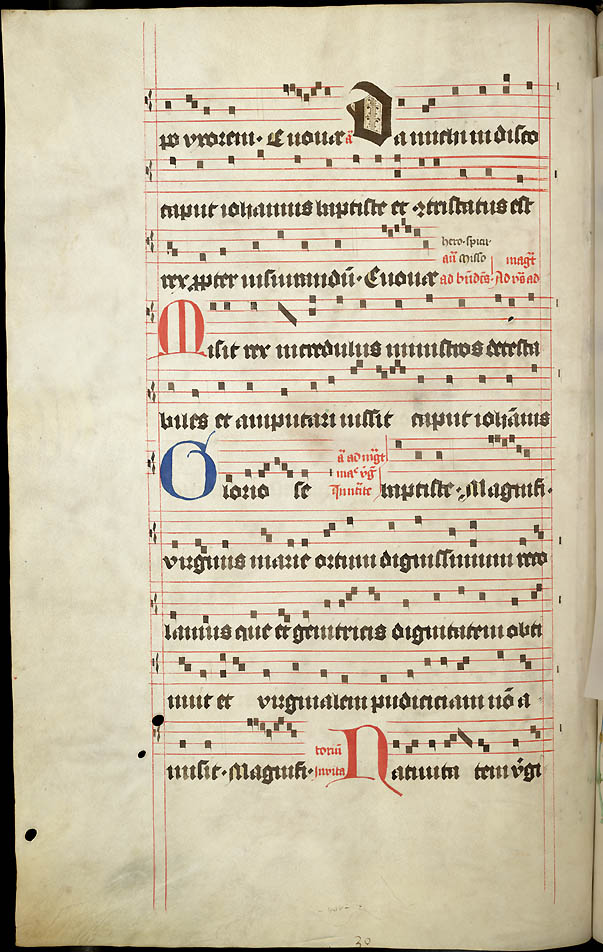 po vxorem · Euouae a̅ Da michi in disco
caput iohannis baptiste et ɔtristatus est
rex ꝓpter iusiurandū · Euouae
Misit rex incredulus ministros detesta
biles et amputari iussit caput iohānis
Glorio se baptiste · Magnifi ·
virginis marie ortum dignissimum reco
lamus que et genitricis dignitatem obti
nuit et virginalem pudiciciam nō a
misit · Magnifi · Inuita toriū Natiuita tem v̄gi
30